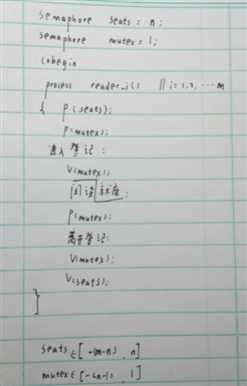 semaphore seats = n;
semaphore mutex = 1;
cobegin
process reader_i() // i=1,2,...m
{ P(seats);
P(mutex);
进入登记;
V(mutex);
阅读就座;
P(mutex);
离开登记;
V(mutex);
V(seats);
}
seats∈[-(m-n), n]
mutex∈[-(n-1), 1]